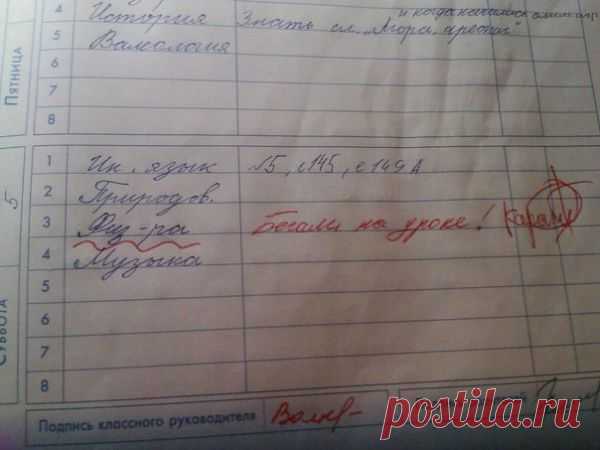 ПЯТНИЦА
4 История Знать сл. „Мора, креп
5 Валеология
6
7
8
5
СУББОТА
1 Ин. язык №5, с145, с149А
2 Природов.
3 Физ-ра Бегали на уроке!
4 Музыка
5
6
7
8
Подпись классного руководителя
postila.ru